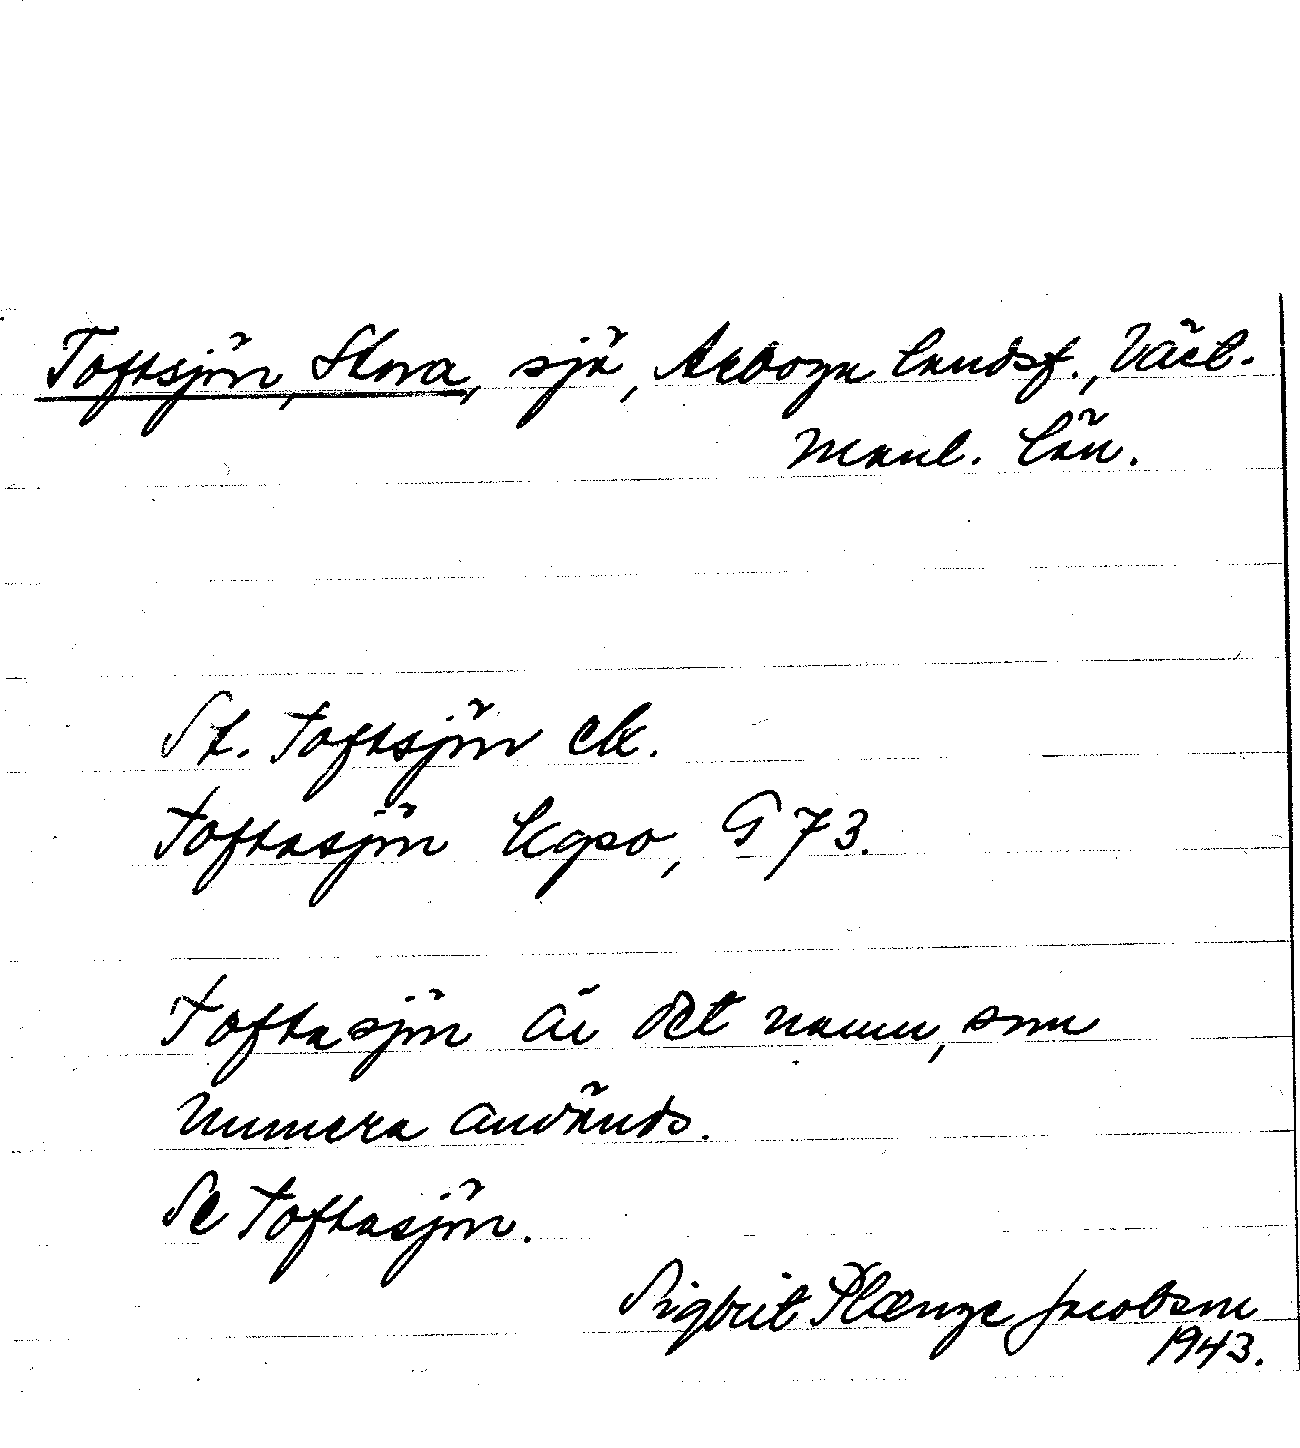 Toftsjön, Stora, sjö, Arboga landsf., Väst-
manl. län.
St. Toftsjön ek.
Toftasjön Kgso, G 73.
Toftasjön är det namn, som
numera används.
Se Toftasjön.
Sigbrit Plænge Jacobson
1943.